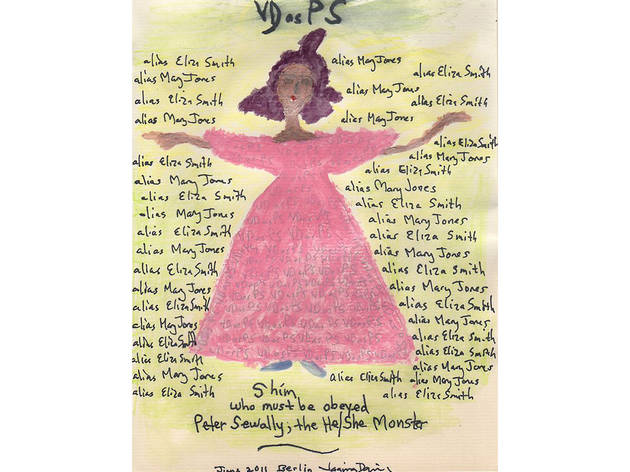 VD as PS
alias Eliza Smith
alias May Jones
alias Eliza Smith
alias May Jones
alias Eliza Smith
alias Mary Jones
alias Eliza Smith
alias May Jones
alias Eliza Smith
alias Mary Jones
alias Eliza Smith
alias May Jones
alias Eliza Smith
alias May Jones
alias Eliza Smith
alias Eliza Smith
alias May Jones
alias Eliza Smith
alias May Jones
alias Eliza Smith
alias May Jones
alias Eliza Smith
alias May Jones
alias Eliza Smith
alias May Jones
alias Eliza Smith
alias Mary Jones
alias Eliza Smith
alias Mary Jones
alias Eliza Smith
alias May Jones
alias Eliza Smith
alias Mary Jones
alias Eliza Smith
alias Mary Jones
alias Eliza Smith
alias Eliza Smith
alias May Jones
alias Eliza Smith
alias May Jones
alias Eliza Smith
Shim
who must be obeyed
Peter Sewally, the He/She Monster
June 2011 Berlin